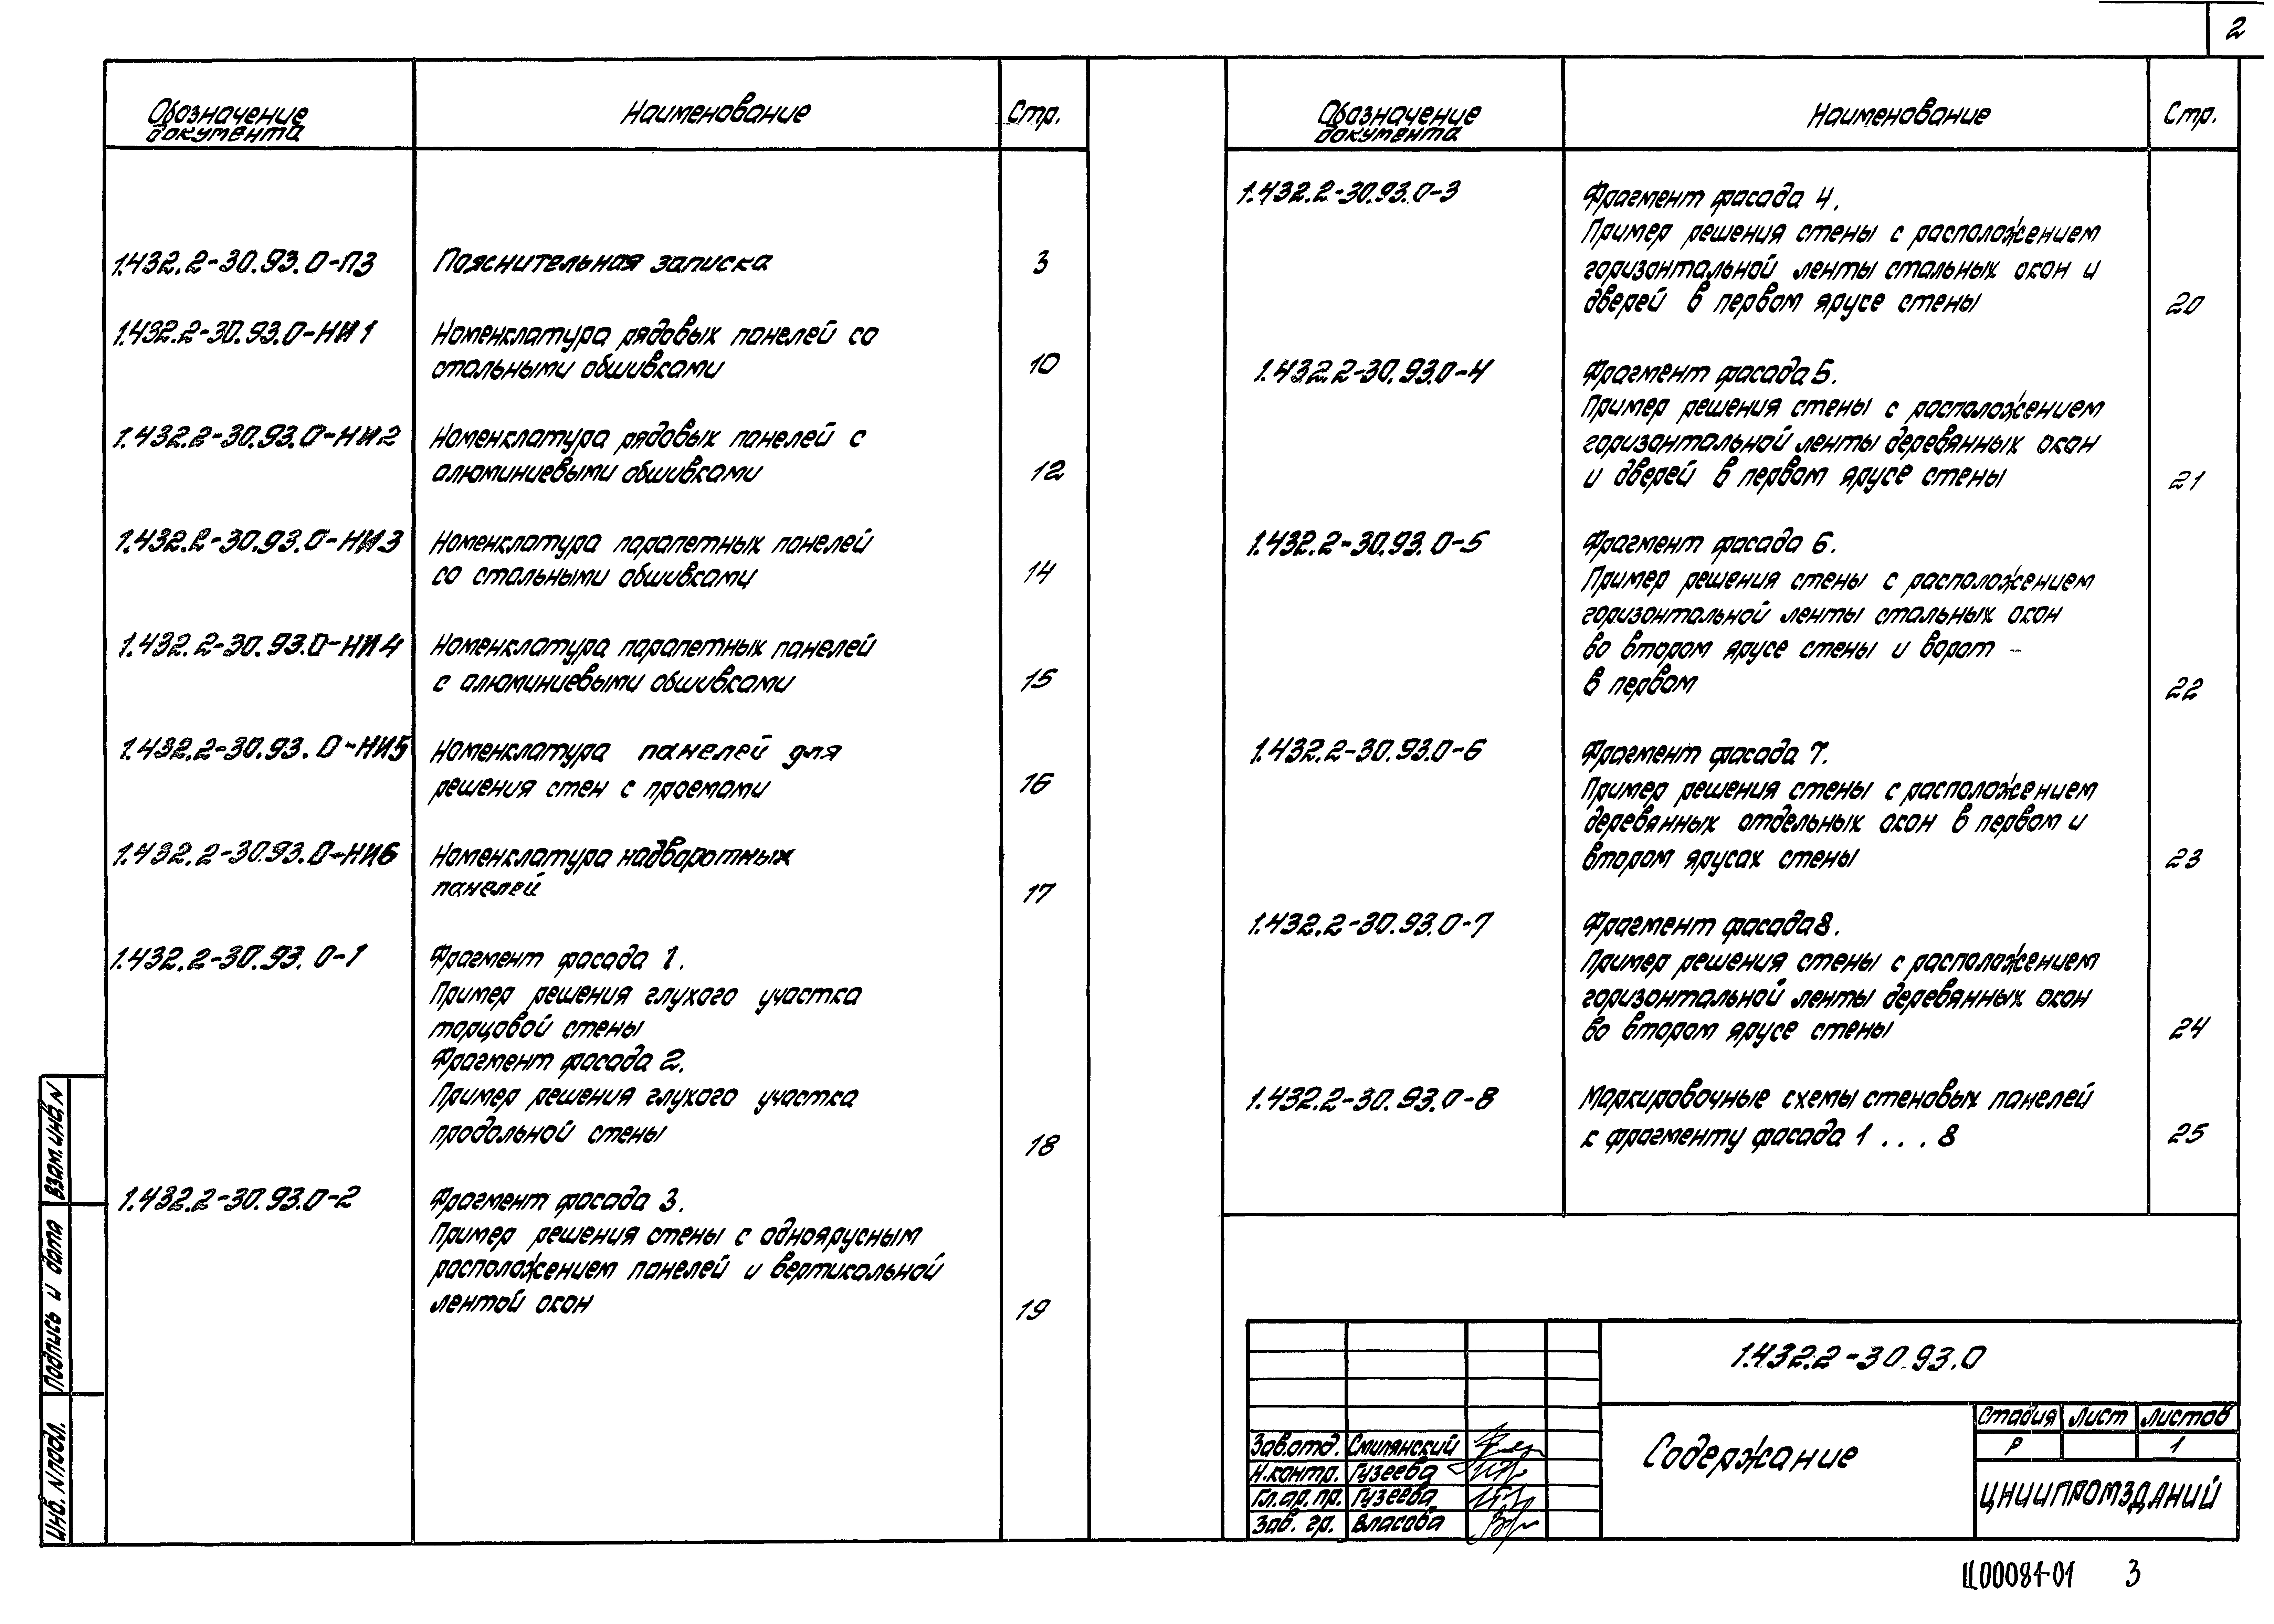 2
Обозначение документа
Наименование
Стр.
1.432.2-30.93.0-ПЗ
Пояснительная записка
3
1.432.2-30.93.0-НИ1
Номенклатура рядовых панелей со
стальными обшивками
10
1.432.2-30.93.0-НИ2
Номенклатура рядовых панелей с
алюминиевыми обшивками
12
1.432.2-30.93.0-НИ3
Номенклатура парапетных панелей
со стальными обшивками
14
1.432.2-30.93.0-НИ4
Номенклатура парапетных панелей
с алюминиевыми обшивками
15
1.432.2-30.93.0-НИ5
Номенклатура панелей для
решения стен с проемами
16
1.432.2-30.93.0-НИ6
Номенклатура надворотных
панелей
17
1.432.2-30.93.0-1
Фрагмент фасада 1.
Пример решения глухого участка
торцовой стены
Фрагмент фасада 2.
Пример решения глухого участка
продольной стены
18
1.432.2-30.93.0-2
Фрагмент фасада 3.
Пример решения стены с одноярусным
расположением панелей и вертикальной
лентой окон
19
Обозначение документа
Наименование
Стр.
1.432.2-30.93.0-3
Фрагмент фасада 4.
Пример решения стены с расположением
горизонтальной ленты стальных окон и
дверей в первом ярусе стены
20
1.432.2-30.93.0-4
Фрагмент фасада 5.
Пример решения стены с расположением
горизонтальной ленты деревянных окон
и дверей в первом ярусе стены
21
1.432.2-30.93.0-5
Фрагмент фасада 6.
Пример решения стены с расположением
горизонтальной ленты стальных окон
во втором ярусе стены и ворот -
в первом
22
1.432.2-30.93.0-6
Фрагмент фасада 7.
Пример решения стены с расположением
деревянных отдельных окон в первом и
втором ярусах стены
23
1.432.2-30.93.0-7
Фрагмент фасада 8.
Пример решения стены с расположением
горизонтальной ленты деревянных окон
во втором ярусе стены
24
1.432.2-30.93.0-8
Маркировочные схемы стеновых панелей
к фрагменту фасада 1 . . . 8
25
Взам. инв. N
Подпись и дата
Инв. N подл.
1.432.2-30.93.0
Зав. отд. Смилянский
Н. контр. Гузеева
Гл. ар. пр. Гузеева
Зав. гр. Власова
Содержание
Стадия Лист Листов
Р 1
ЦНИИПРОМЗДАНИЙ
Ц00081-01 3